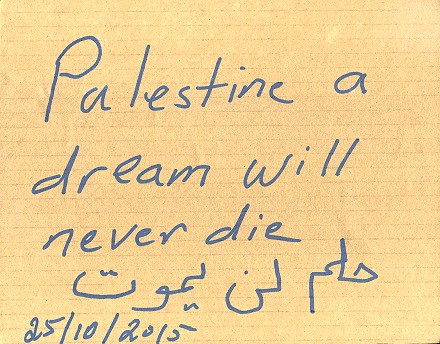 Palestine a
dream will
never die
حلم لن يموت
25/10/2015